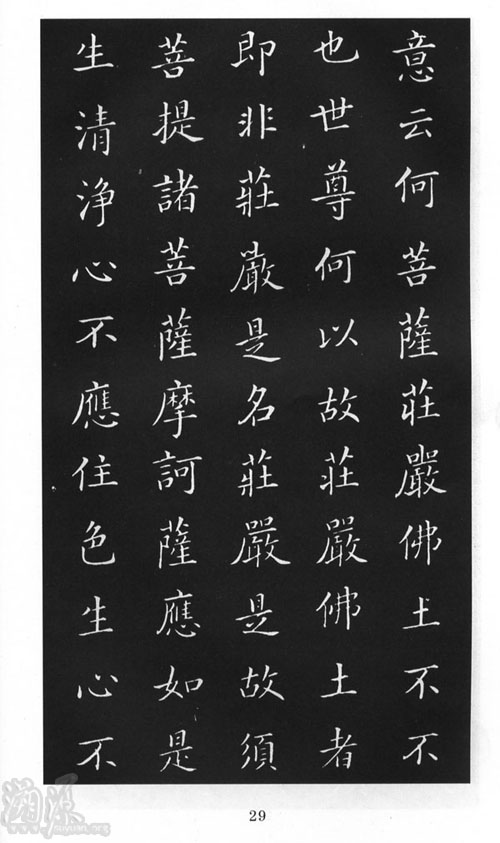 意云何菩薩莊嚴佛土不不
也世尊何以故莊嚴佛土者
即非莊嚴是名莊嚴是故須
菩提諸菩薩摩訶薩應如是
生清淨心不應住色生心不
29